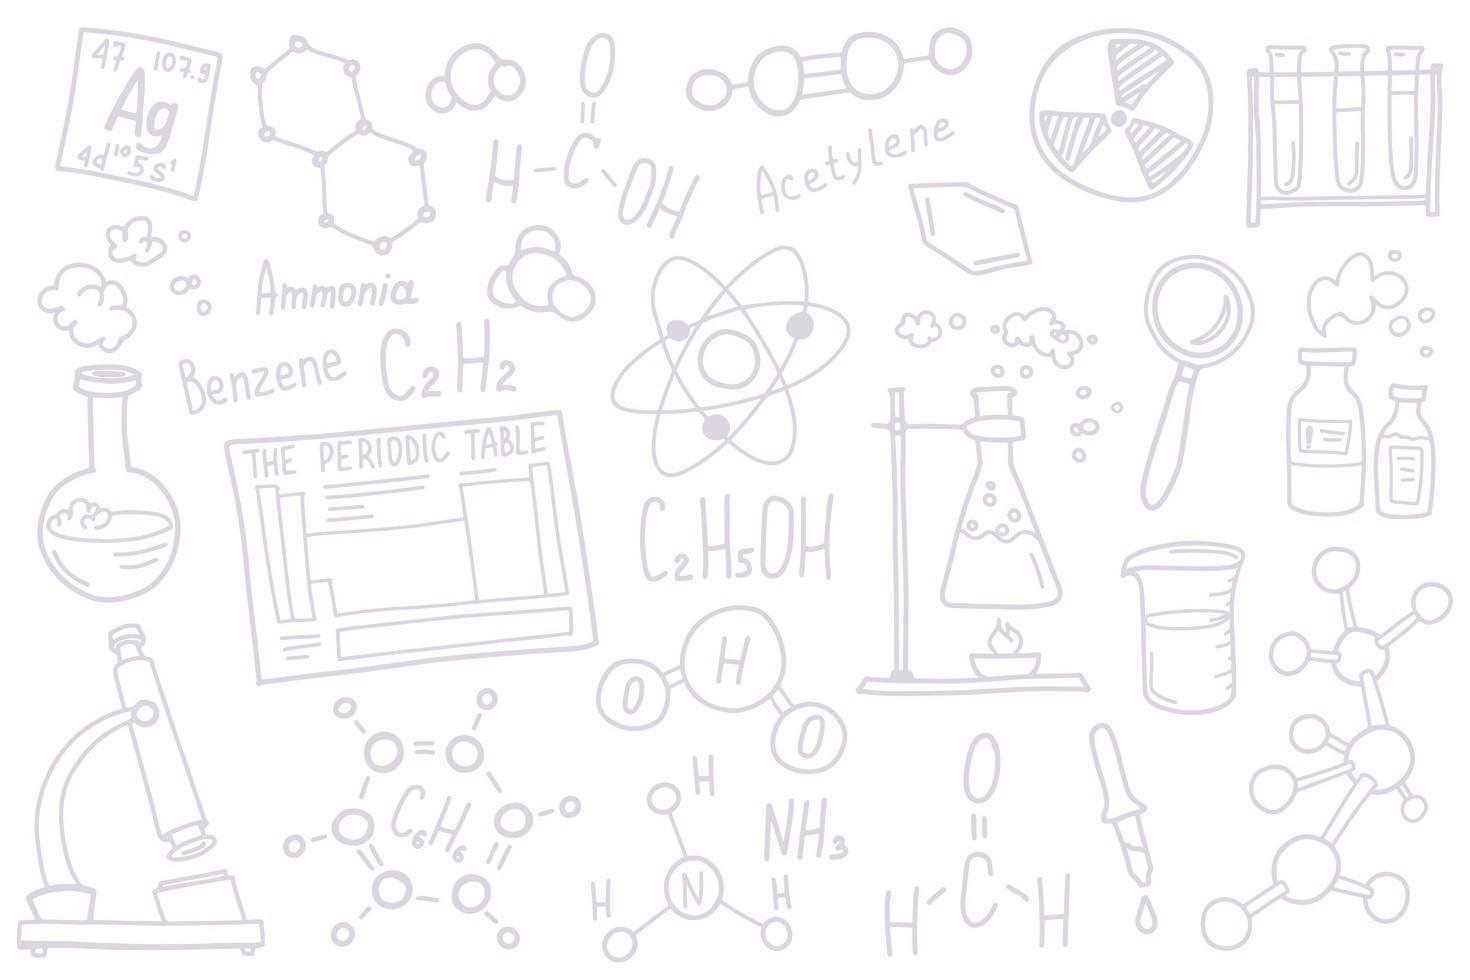 47 107.9
Ag
4d¹⁰5s¹
O
H C OH
Acetylene
Ammonia
Benzene C₂H₂
THE PERIODIC TABLE
!
C₂H₅OH
H
O O
C₆H₆
H
N
H H
NH₃
O
C
H H